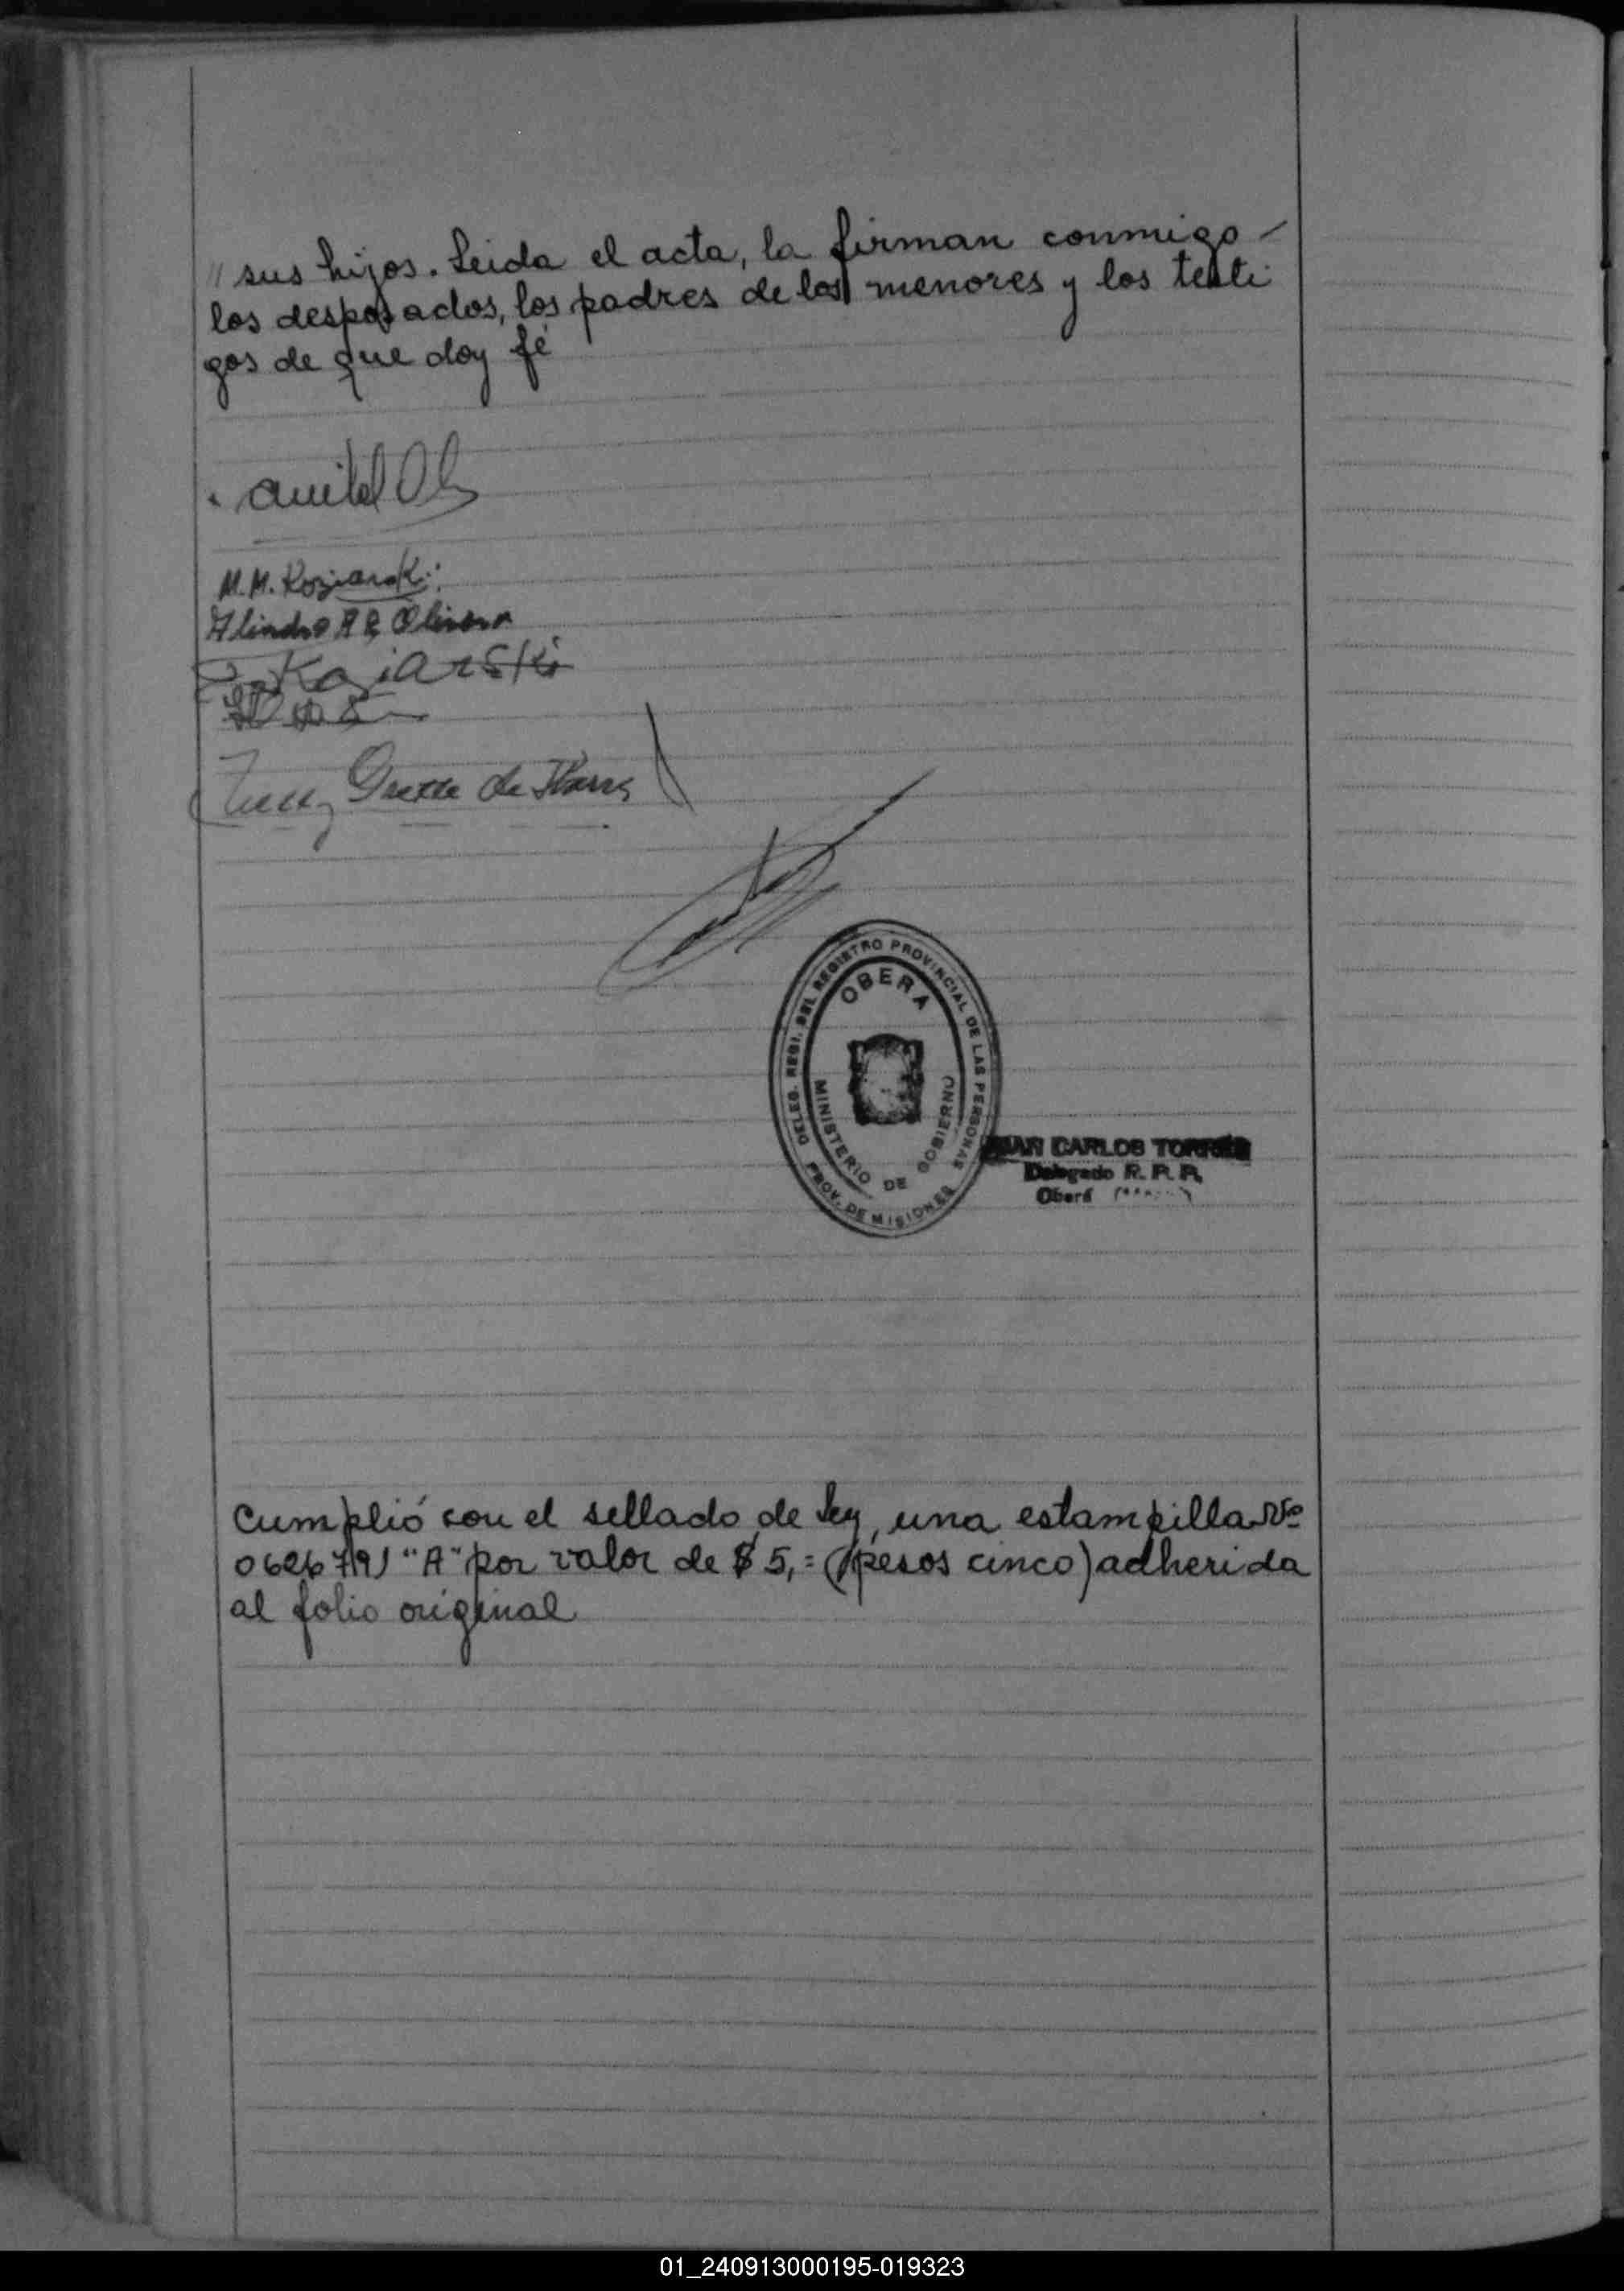 " sus hijos. Leida el acta, la firman conmigo -
los desposados, los padres de los menores y los testi
gos de que doy fé
M.M. Koziarski
Olivera
Koziarski
de Ibarra
DELEG. REGI. DEL REGISTRO PROVINCIAL DE LAS PERSONAS
OBERA
MINISTERIO DE GOBIERNO
PROV. DE MISIONES
JUAN CARLOS TORRES
Delegado R. P. P.
Oberá
Cumplió con el sellado de ley, una estampilla Nº
0626791 "A" por valor de $ 5,= (pesos cinco) adherida
al folio original
01_240913000195-019323